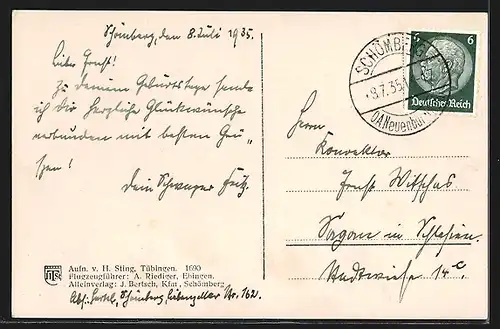 Schömberg, den 8. Juli 1935.
Lieber Ernst!
Zu deinem Geburtstage sende
ich die herzliche Glückwünsche
verbunden mit besten Grü„
ßen!
Dein Schwager Fritz.
Aufn. v. H. Sting, Tübingen. 1690
Flugzeugführer: A. Riediger, Ebingen.
Alleinverlag: J. Bertsch, Kfm., Schömberg
Abs: Schömberg Liebenzeller Str. 162.
SCHÖMBERG
-8.7.35
OA. Neuenbürg
6
Deutsches Reich
Herrn
Konrektor
Ernst
Sagan in Schlesien.
Stadtwiese 14c